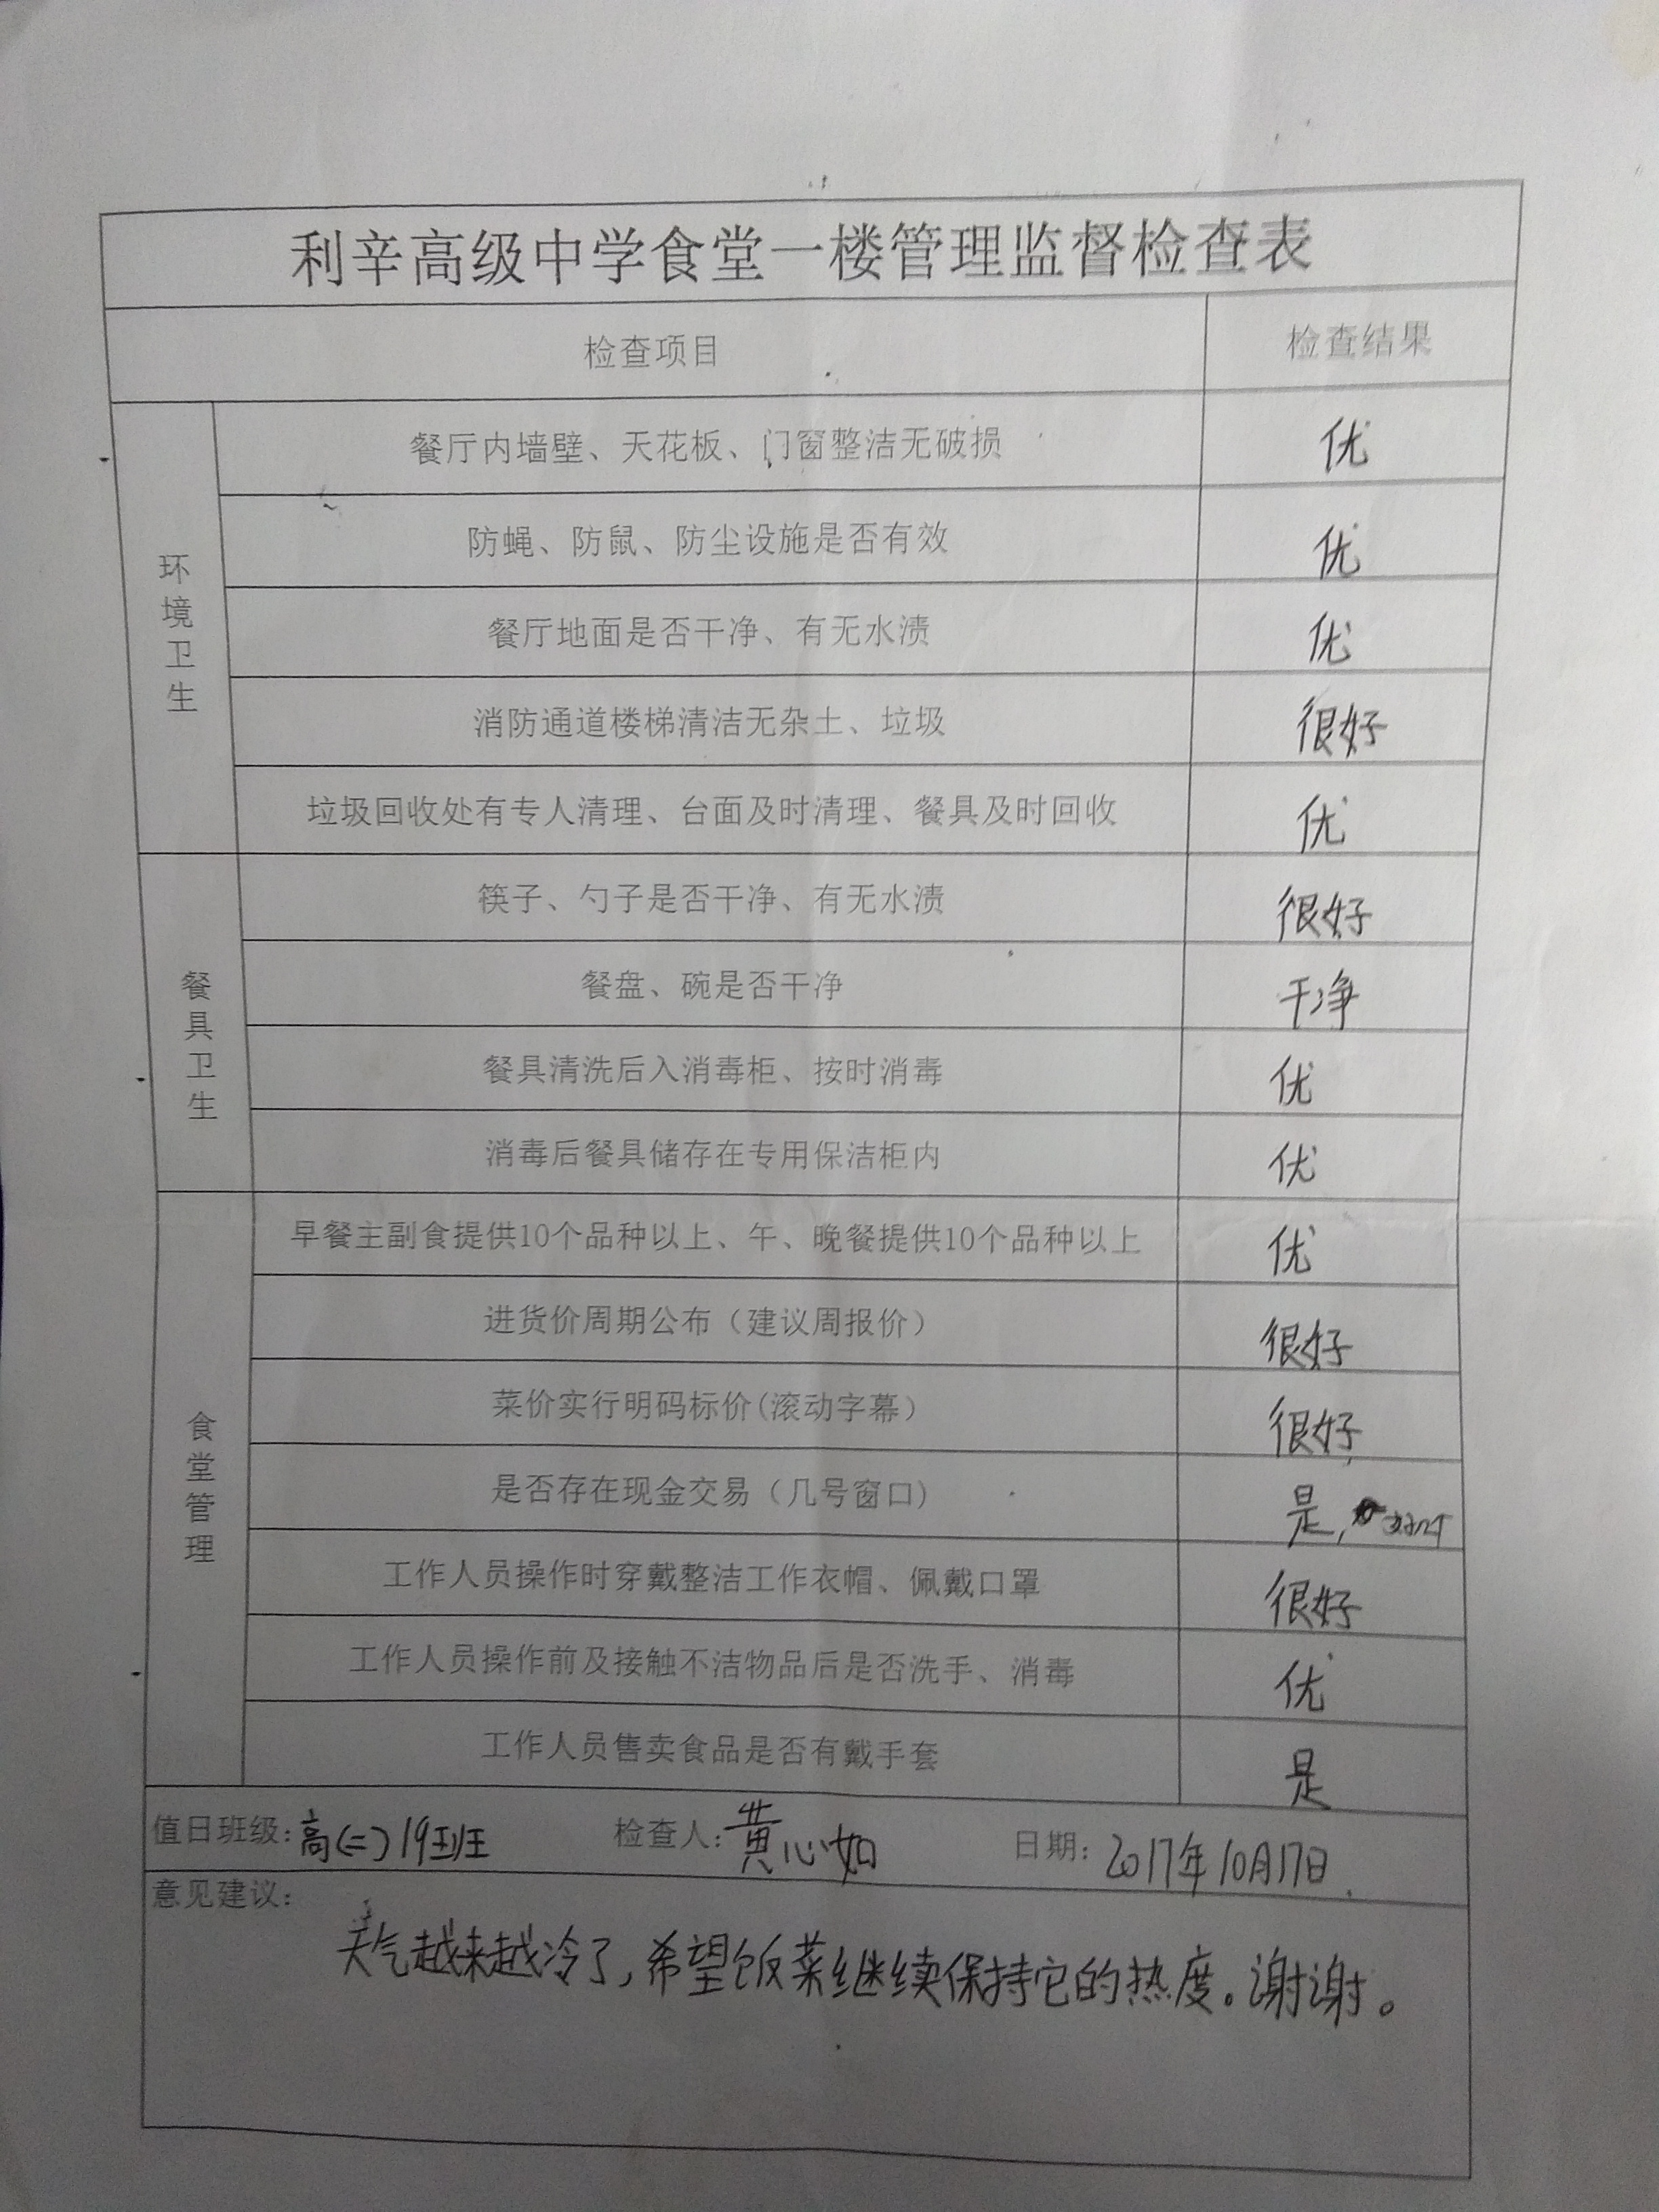 利辛高级中学食堂一楼管理监督检查表
检查项目 检查结果
环境卫生
餐厅内墙壁、天花板、门窗整洁无破损 优
防蝇、防鼠、防尘设施是否有效 优
餐厅地面是否干净、有无水渍 优
消防通道楼梯清洁无杂土、垃圾 很好
垃圾回收处有专人清理、台面及时清理、餐具及时回收 优
餐具卫生
筷子、勺子是否干净、有无水渍 很好
餐盘、碗是否干净 干净
餐具清洗后入消毒柜、按时消毒 优
消毒后餐具储存在专用保洁柜内 优
食堂管理
早餐主副食提供10个品种以上、午、晚餐提供10个品种以上 优
进货价周期公布（建议周报价） 很好
菜价实行明码标价(滚动字幕） 很好
是否存在现金交易（几号窗口） 是,
工作人员操作时穿戴整洁工作衣帽、佩戴口罩 很好
工作人员操作前及接触不洁物品后是否洗手、消毒 优
工作人员售卖食品是否有戴手套 是
值日班级:高(二)19班 检查人:黄心如 日期:2017年10月17日.
意见建议:
天气越来越冷了,希望饭菜继续保持它的热度。谢谢。